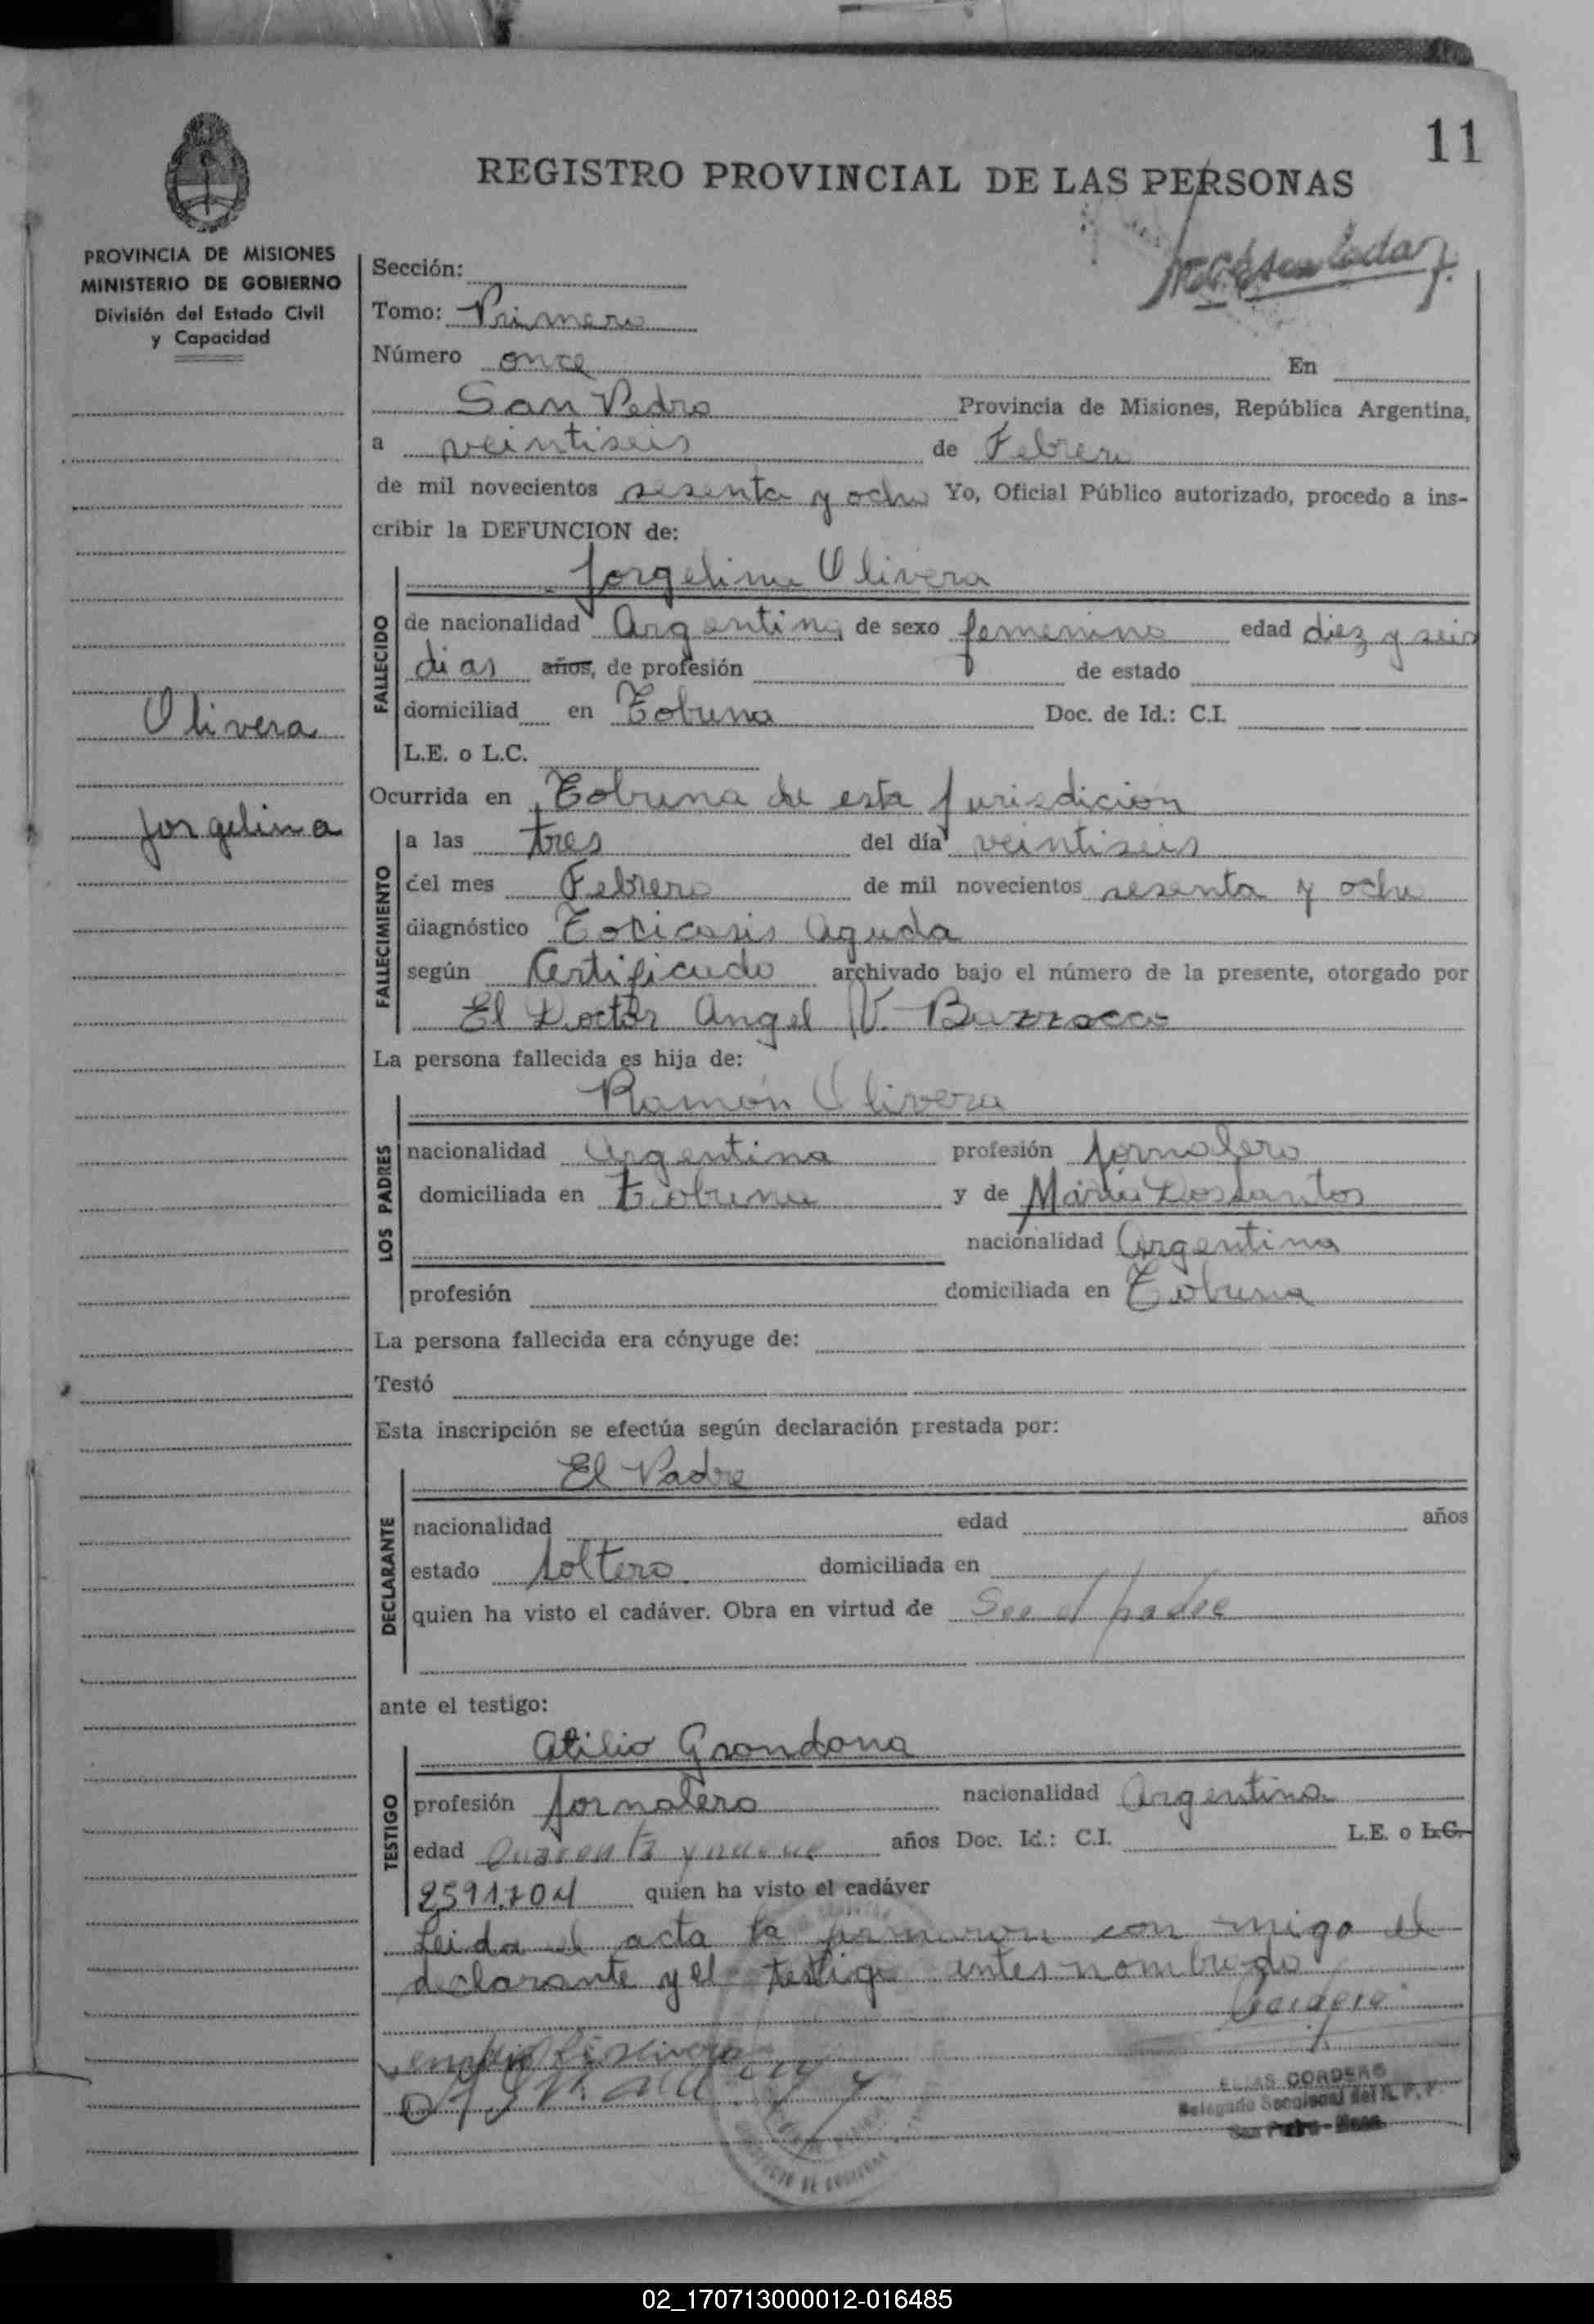 11
REGISTRO PROVINCIAL DE LAS PERSONAS
PROVINCIA DE MISIONES
MINISTERIO DE GOBIERNO
División del Estado Civil
y Capacidad
Olivera
Jorgelina
Sección:
Tomo: Primero
Número once En
San Pedro Provincia de Misiones, República Argentina,
a veintiseis de Febrero
de mil novecientos sesenta y ocho Yo, Oficial Público autorizado, procedo a ins-
cribir la DEFUNCION de:
Jorgelina Olivera
FALLECIDO
de nacionalidad Argentina de sexo femenino edad diez y seis
dias años, de profesión de estado
domiciliad en Tobuna Doc. de Id.: C.I.
L.E. o L.C.
Ocurrida en Tobuna de esta Jurisdicion
FALLECIMIENTO
a las tres del día veintiseis
del mes Febrero de mil novecientos sesenta y ocho
diagnóstico Toxicosis Aguda
según Certificado archivado bajo el número de la presente, otorgado por
El Doctor Angel V.
La persona fallecida es hija de:
Ramón Olivera
LOS PADRES
nacionalidad Argentina profesión Jornalero
domiciliada en Tobuna y de Maria Dos Santos
nacionalidad Argentina
profesión domiciliada en Tobuna
La persona fallecida era cónyuge de:
Testó
Esta inscripción se efectúa según declaración prestada por:
El Padre
DECLARANTE
nacionalidad edad años
estado soltero domiciliada en
quien ha visto el cadáver. Obra en virtud de Ser el padre
ante el testigo:
Atilio Grondona
TESTIGO
profesión Jornalero nacionalidad Argentina
edad Quarenta y nueve años Doc. Id.: C.I. L.E. o L.C.
2591.704 quien ha visto el cadáver
Leida el acta la firmaron con migo el
declarante y el testigo antes nombrado
ELIAS CORDERO
Delegado Seccional del R. P. P.
San Pedro - Mnes.
02_170713000012-016485